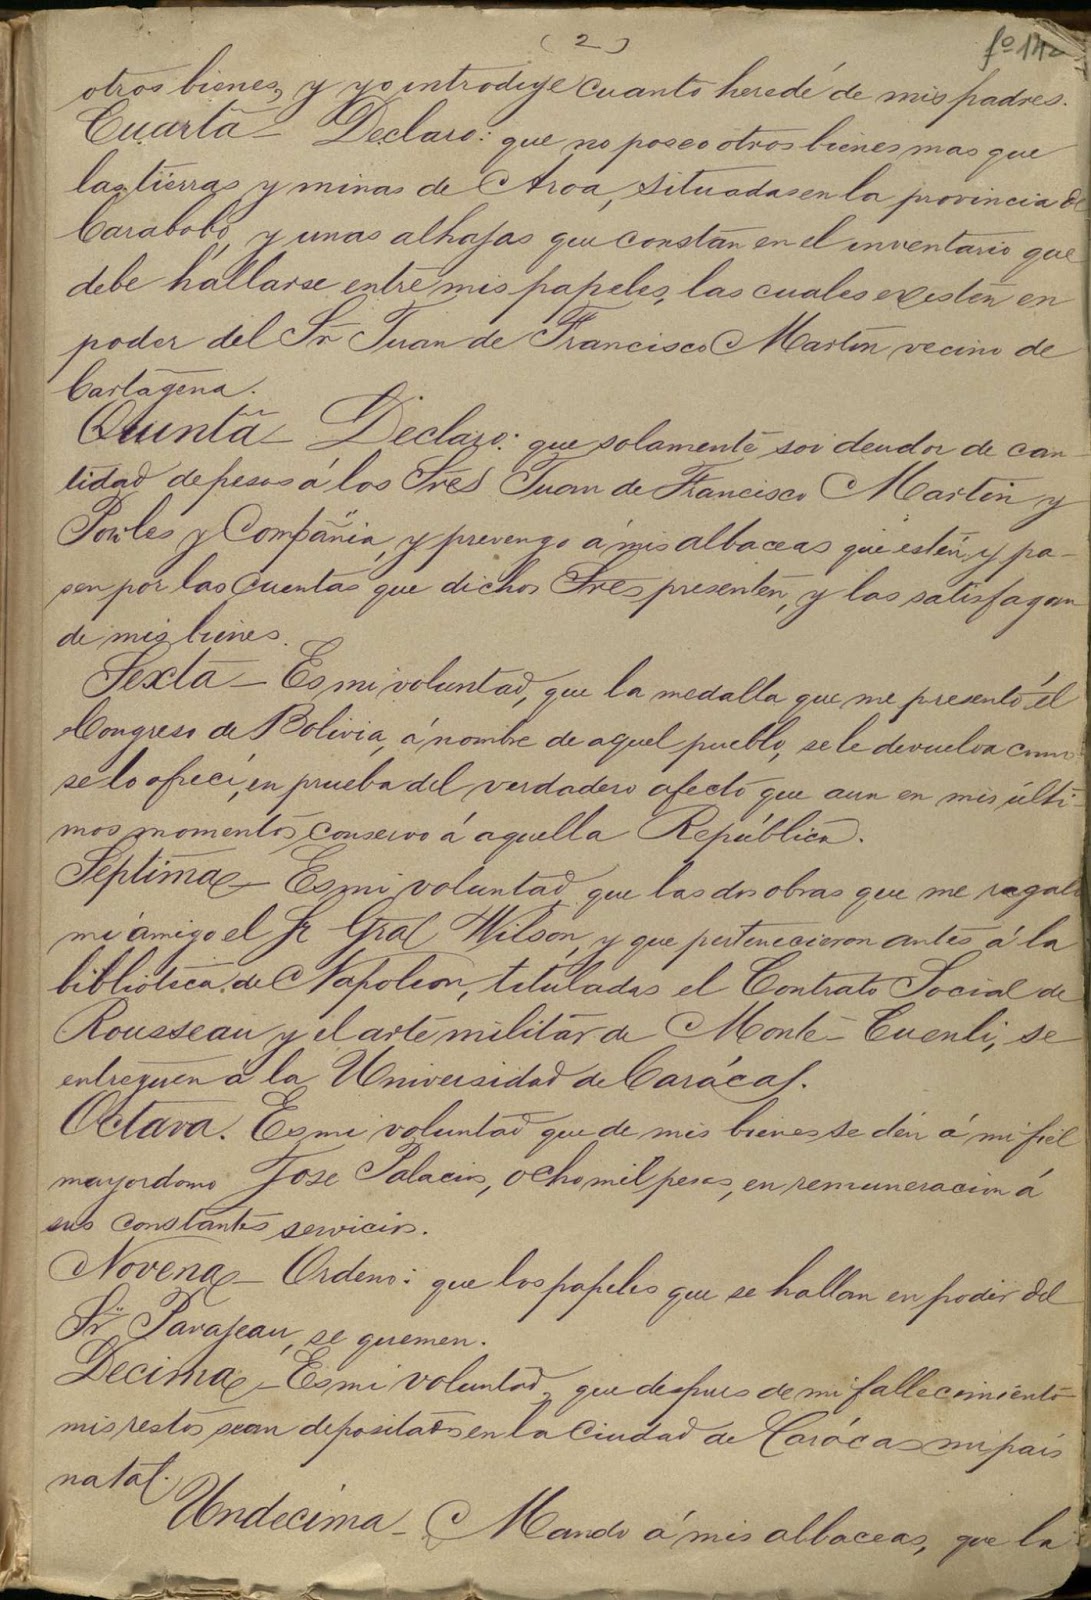 (2)
fº 142
otros bienes, y yo introduje cuanto heredé de mis padres.
Cuarta – Declaro: que no poseo otros bienes mas que
las tierras y minas de Aroa, situadas en la provincia de
Carabobo, y unas alhajas que constan en el inventario que
debe hallarse entre mis papeles, las cuales existen en
poder del Sr Juan de Francisco Martin vecino de
Cartagena.
Quinta – Declaro: que solamente soi deudor de can-
tidad de pesos á los Sres Juan de Francisco Martin y
Powles y Compañia, y prevengo á mis albaceas que estén y pa-
sen por las cuentas que dichos Sres presenten, y las satisfagan
de mis bienes.
Sexta – Es mi voluntad, que la medalla que me presentó el
Congreso de Bolivia, á nombre de aquel pueblo, se le devuelva como
se lo ofrecí, en prueba del verdadero afecto que aun en mis últi-
mos momentos conservo á aquella República.
Septima – Es mi voluntad, que las dos obras que me regaló
mi ámigo el Sr Gral Wilson, y que pertenecieron antes á la
biblioteca de Napoleon, tituladas el Contrato Social de
Rousseau y el arte militar de Monte-Cuenli, se
entreguen á la Universidad de Carácas.
Octava. Es mi voluntad que de mis bienes se dén á mi fiel
mayordomo Jose Palacios, ocho mil pesos, en remuneracion á
sus constantes servicios.
Novena – Ordeno: que los papeles que se hallan en poder del
Sr Pavajeau, se quemen.
Decima – Es mi voluntad, que despues de mi fallecimiento
mis restos sean depositados en la ciudad de Carácas mi pais
natal.
Undecima – Mando á mis albaceas, que la